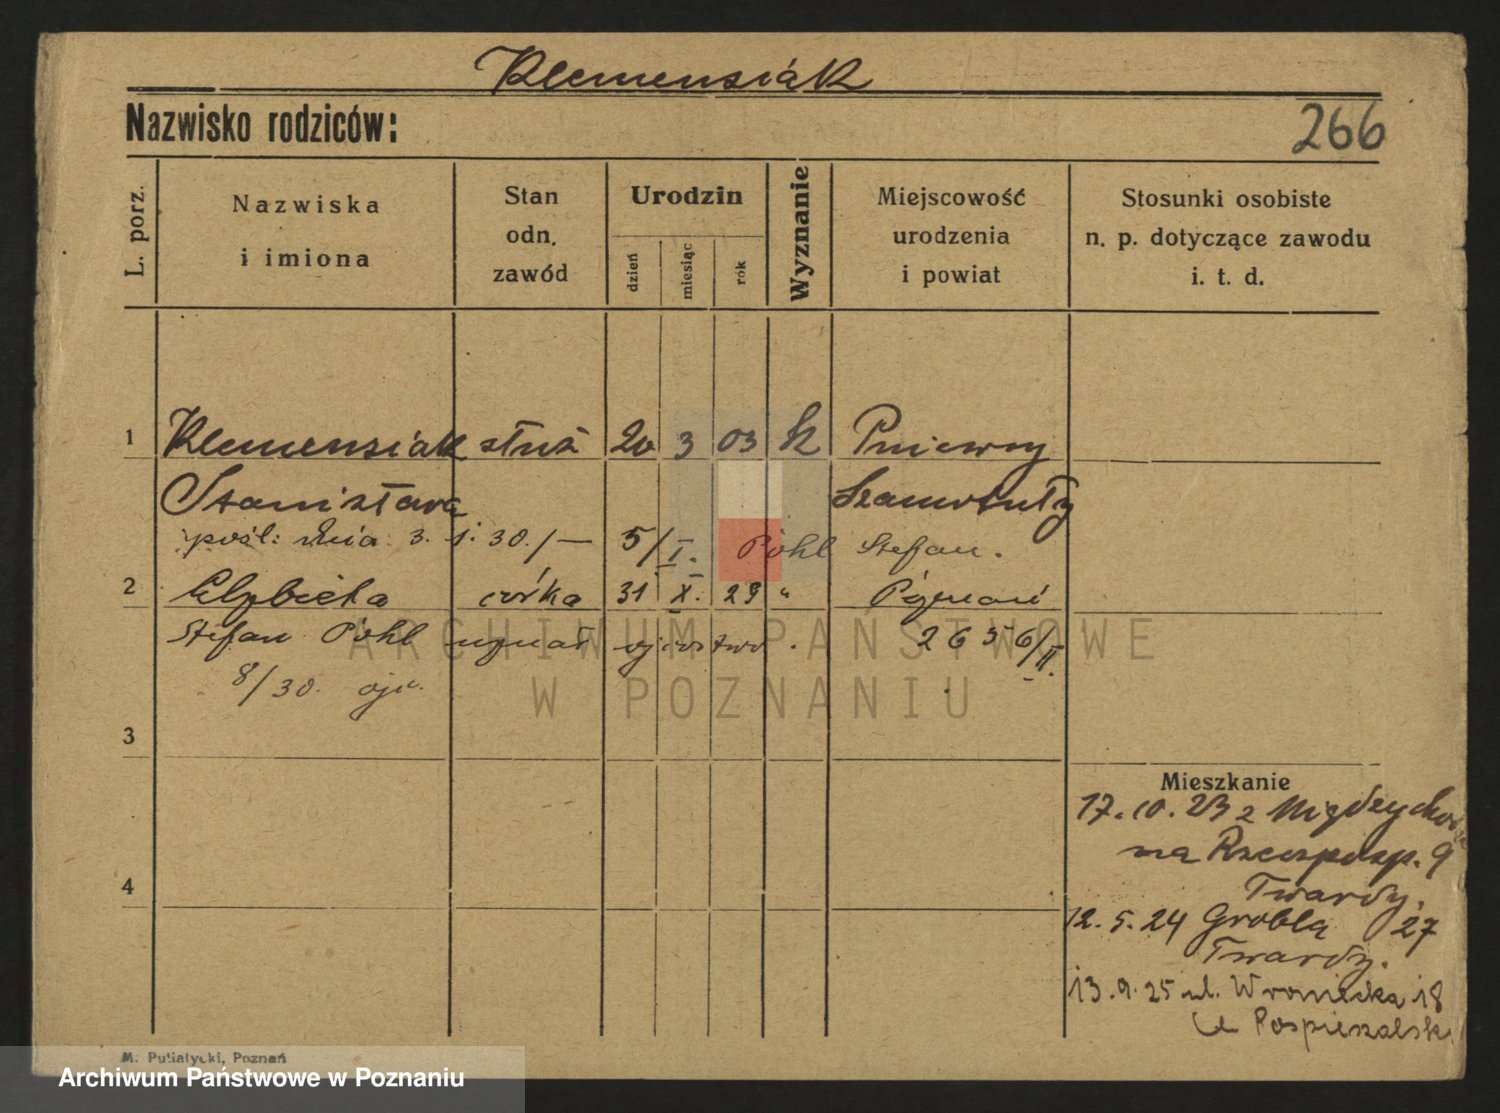 Klemensiak
Nazwisko rodziców:
266
L. porz.
Nazwiska
i imiona
Stan
odn.
zawód
Urodzin
dzień
miesiąc
rok
Wyznanie
Miejscowość
urodzenia
i powiat
Stosunki osobiste
n. p. dotyczące zawodu
i. t. d.
1 Klemensiak służ 20 3 03 k Pniewy
Stanisława Szamotuły
pośl: dnia 3. 1. 30. /— 5/I. Pohl Stefan.
2 Elżbieta córka 31 X. 29 " Poznań
Stefan Pohl uznał ojcostwo. 2656/II.
8/30.
3
4
Mieszkanie
17.10.23 z Międzychoda
na Rzeczposp. 9
Twardy.
12.5.24 Grobla 27
Twardy.
13.9.25 ul. Wroniecka 18
u Pospieszalsk
M. Putiatycki, Poznań
ARCHIWUM PAŃSTWOWE
W POZNANIU
Archiwum Państwowe w Poznaniu